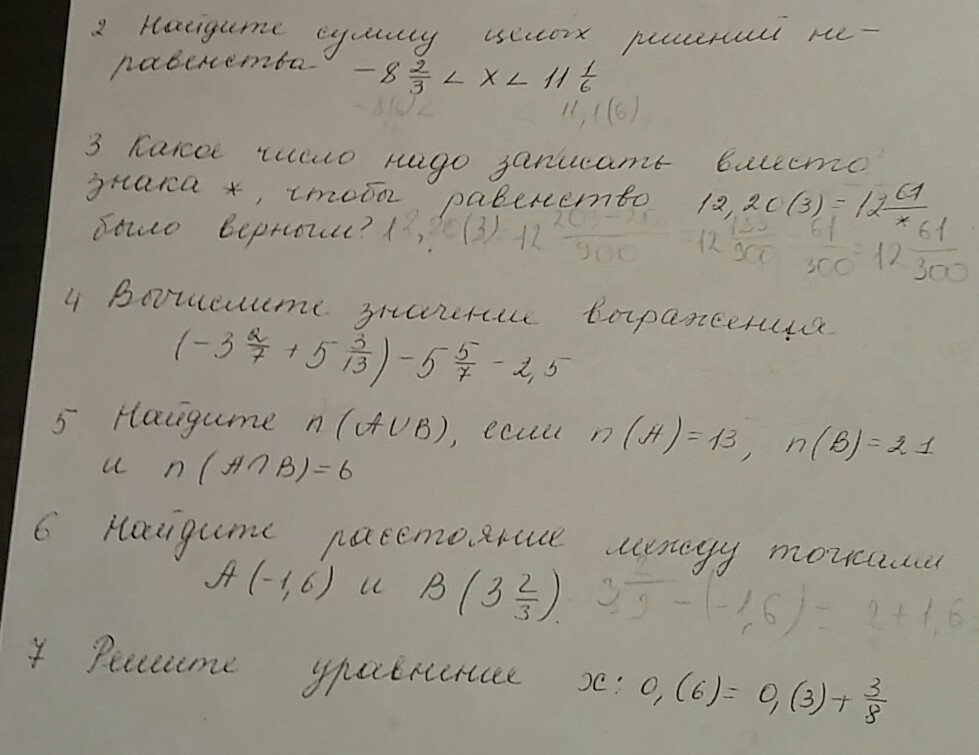 2 Найдите сумму целых решений не-
равенства -8 2/3 < x < 11 1/6
-8(6) < < 11,1(6)
3 Какое число надо записать вместо
знака *, чтобы равенство 12,20(3) = 12 61/*
было верным? 12,20(3) = 12 203-20/900 = 12 183/900 61/300 = 12 61/300
4 Вычислите значение выражения
(-3 2/7 + 5 3/13) - 5 5/7 - 2,5
5 Найдите n(A∪B), если n(A)=13, n(B)=21
и n(A∩B)=6
6 Найдите расстояние между точками
A(-1,6) и B(3 2/3). - (-1,6) = 2+1,6
7 Решите уравнение x: 0,(6) = 0,(3) + 3/8